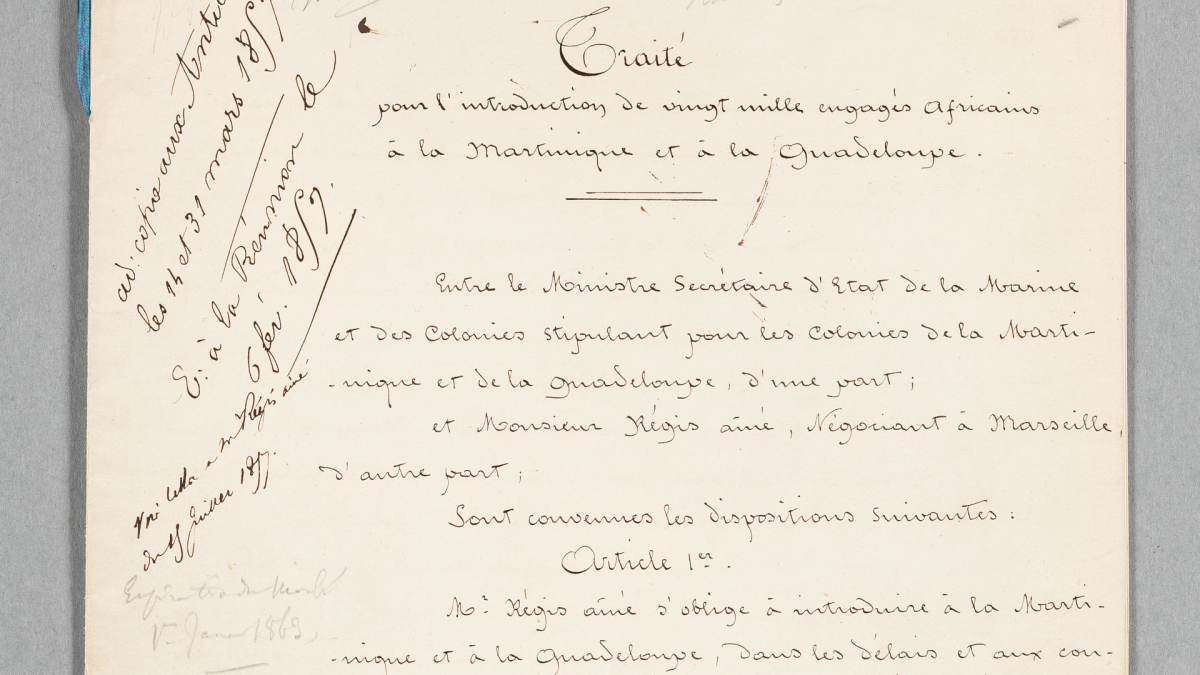 Traité
pour l'introduction de vingt mille engagés africains
à la Martinique et à la Guadeloupe.
Entre le Ministre Secrétaire d'Etat de la Marine
et des Colonies stipulant pour les Colonies de la Marti-
-nique et de la Guadeloupe, d'une part;
et Monsieur Régis aîné, Négociant à Marseille,
d'autre part;
Sont convenues les dispositions suivantes:
Article 1er.
Mr. Régis aîné s'oblige à introduire à la Marti-
-nique et à la Guadeloupe, dans les délais et aux con-
ad. copie aux
les 14 et 31 mars 185
E. à la Réunion le
6 fév. 1857.
lettre a mr Régis aîné
du 15 1857.
1er 1863